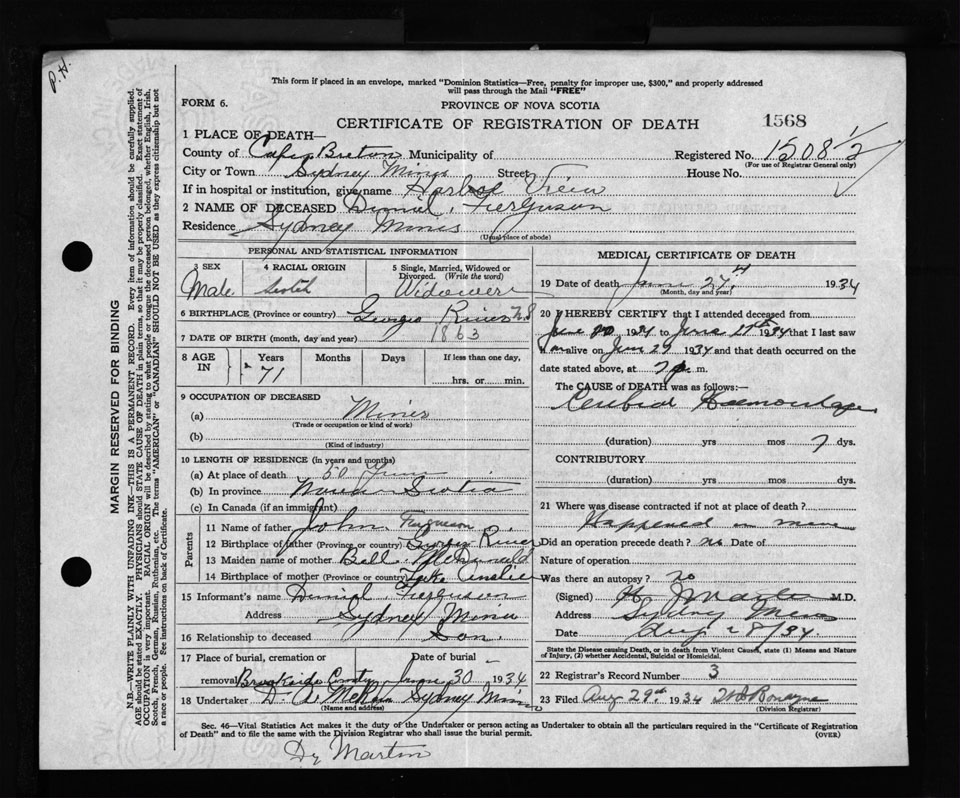 P.H.
This form if placed in an envelope, marked "Dominion Statistics—Free, penalty for improper use, $300," and properly addressed
will pass through the Mail "FREE"
FORM 6.
PROVINCE OF NOVA SCOTIA
CERTIFICATE OF REGISTRATION OF DEATH
1568
1 PLACE OF DEATH—
County of Cape Breton Municipality of
Registered No. 1508 1/2
(For use of Registrar General only)
City or Town Sydney Mines Street House No.
If in hospital or institution, give name Harbor View
2 NAME OF DECEASED Ferguson
Residence Sydney Mines
(Usual place of abode)
PERSONAL AND STATISTICAL INFORMATION
3 SEX
Male
4 RACIAL ORIGIN
Scotch
5 Single, Married, Widowed or
Divorced. (Write the word)
Widower
6 BIRTHPLACE (Province or country) Georges River N.S
7 DATE OF BIRTH (month, day and year) 1863
8 AGE IN
Years
71
Months
Days
If less than one day,
hrs. or min.
9 OCCUPATION OF DECEASED
(a)
(Trade or occupation or kind of work)
(b)
(Kind of industry)
10 LENGTH OF RESIDENCE (in years and months)
(a) At place of death 50
(b) In province Nova Scotia
(c) In Canada (if an immigrant)
Parents
11 Name of father John Ferguson
12 Birthplace of father (Province or country) River
13 Maiden name of mother McDonald
14 Birthplace of mother (Province or country)
15 Informant's name Ferguson
Address Sydney Mines
16 Relationship to deceased Son.
17 Place of burial, cremation or
removal
Date of burial
June 30 1934
18 Undertaker D. A. Sydney Mines
(Name and address)
MEDICAL CERTIFICATE OF DEATH
19 Date of death June 27th 1934
(Month, day and year)
20 I HEREBY CERTIFY that I attended deceased from
June 1934 to June 1934 that I last saw
h alive on June 1934 and that death occurred on
date stated above, at m.
The CAUSE of DEATH was as follows:—
Cerebral Haemorrhage
(duration) yrs mos 7 dys.
CONTRIBUTORY
(duration) yrs mos dys.
21 Where was disease contracted if not at place of death?
Happened in
Did an operation precede death? no Date of
Nature of operation
Was there an autopsy? no
(Signed) M.D.
Address Sydney Mines
Date Aug 28/34.
State the Disease causing Death, or in death from Violent Causes, state (1) Means and Nature
of Injury, (2) whether Accidental, Suicidal or Homicidal.
22 Registrar's Record Number 3
23 Filed Aug 29th 1934
(Division Registrar)
Sec. 46—Vital Statistics Act makes it the duty of the Undertaker or person acting as Undertaker to obtain all the particulars required in the "Certificate of Registration
of Death" and to file the same with the Division Registrar who shall issue the burial permit.
(OVER)
Dr Martin
MARGIN RESERVED FOR BINDING
N.B.—WRITE PLAINLY WITH UNFADING INK—THIS IS A PERMANENT RECORD. Every item of information should be carefully supplied.
AGE should be stated EXACTLY. PHYSICIANS should STATE CAUSE OF DEATH in plain terms, so that it may be properly classified. Exact statement of
OCCUPATION is very important. RACIAL ORIGIN will be described by stating to what people or tongue the deceased person belonged, whether English, Irish,
Scotch, French, German, Russian, Ruthenian, etc. The terms "AMERICAN" or "CANADIAN" SHOULD NOT BE USED as they express citizenship but not
a race or people. See instructions on back of Certificate.